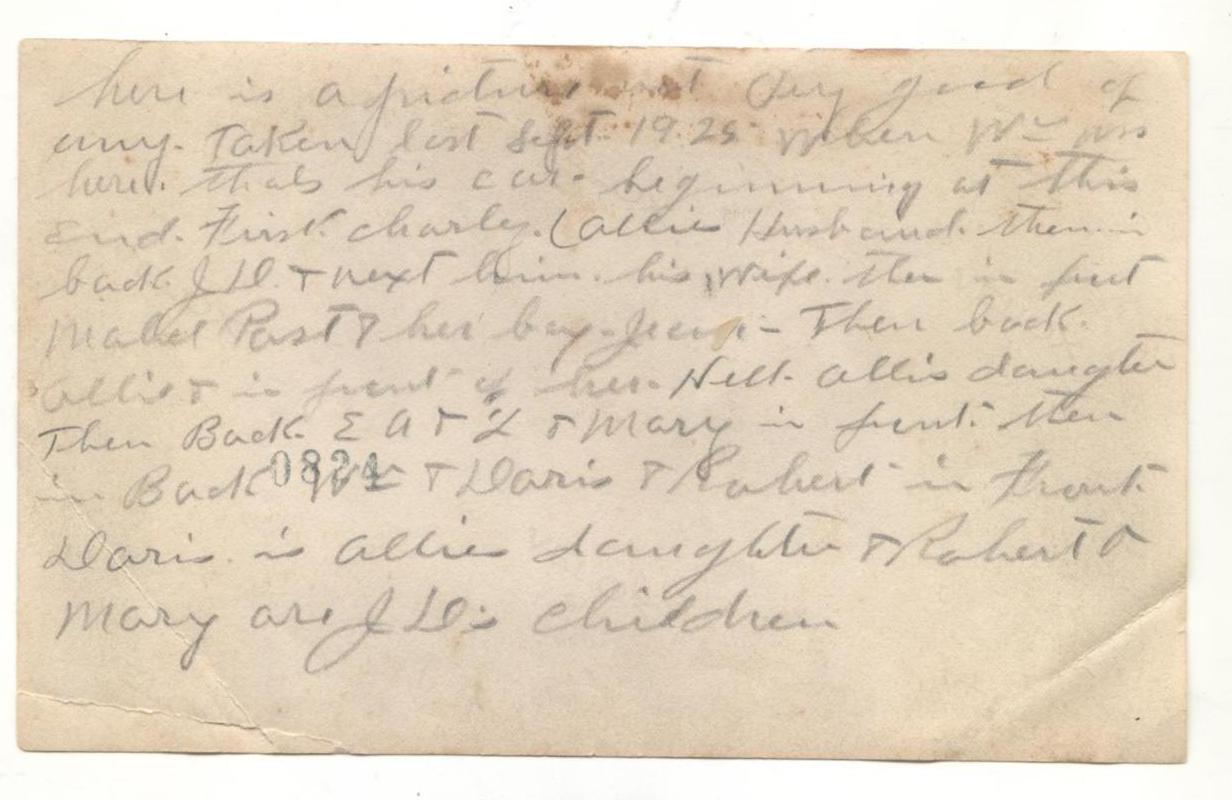 here is a picture not very good of
any. Taken last Sept. 1925 when Wm was
here. thats his car. beginning at this
End. First. Charly. (Allies Husband. then in
back. J D. & next him. his wife. then in frunt
Mabel Post & her boy.  - Then back.
Allie & in frunt of her. Nell. Allis daughter
Then Back. E A & L & Mary in frunt. then
in Back Wm & Doris & Robert in Front.
0824
Doris. is Allies daughter & Robert &
Mary are J D's children